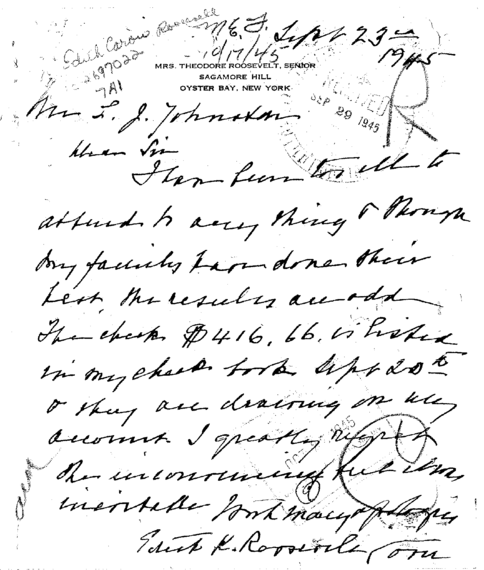 Edith Carow Roosevelt
M.E.F.
Sept 23rd
10/17/45
1945
2697022
7A1
MRS. THEODORE ROOSEVELT, SENIOR
SAGAMORE HILL
OYSTER BAY, NEW YORK
R
RECEIVED
SEP 29 1945
Mr. F. J. Johnston
Dear Sir
I have been too ill to
attend to any thing & though
my family have done their
best the results are odd
The check $416.66. is listed
in my check book Sept 20th
& they are drawing on my
account I greatly regret
the inconvenience but it was
inevitable With many apologies
Edith K. Roosevelt